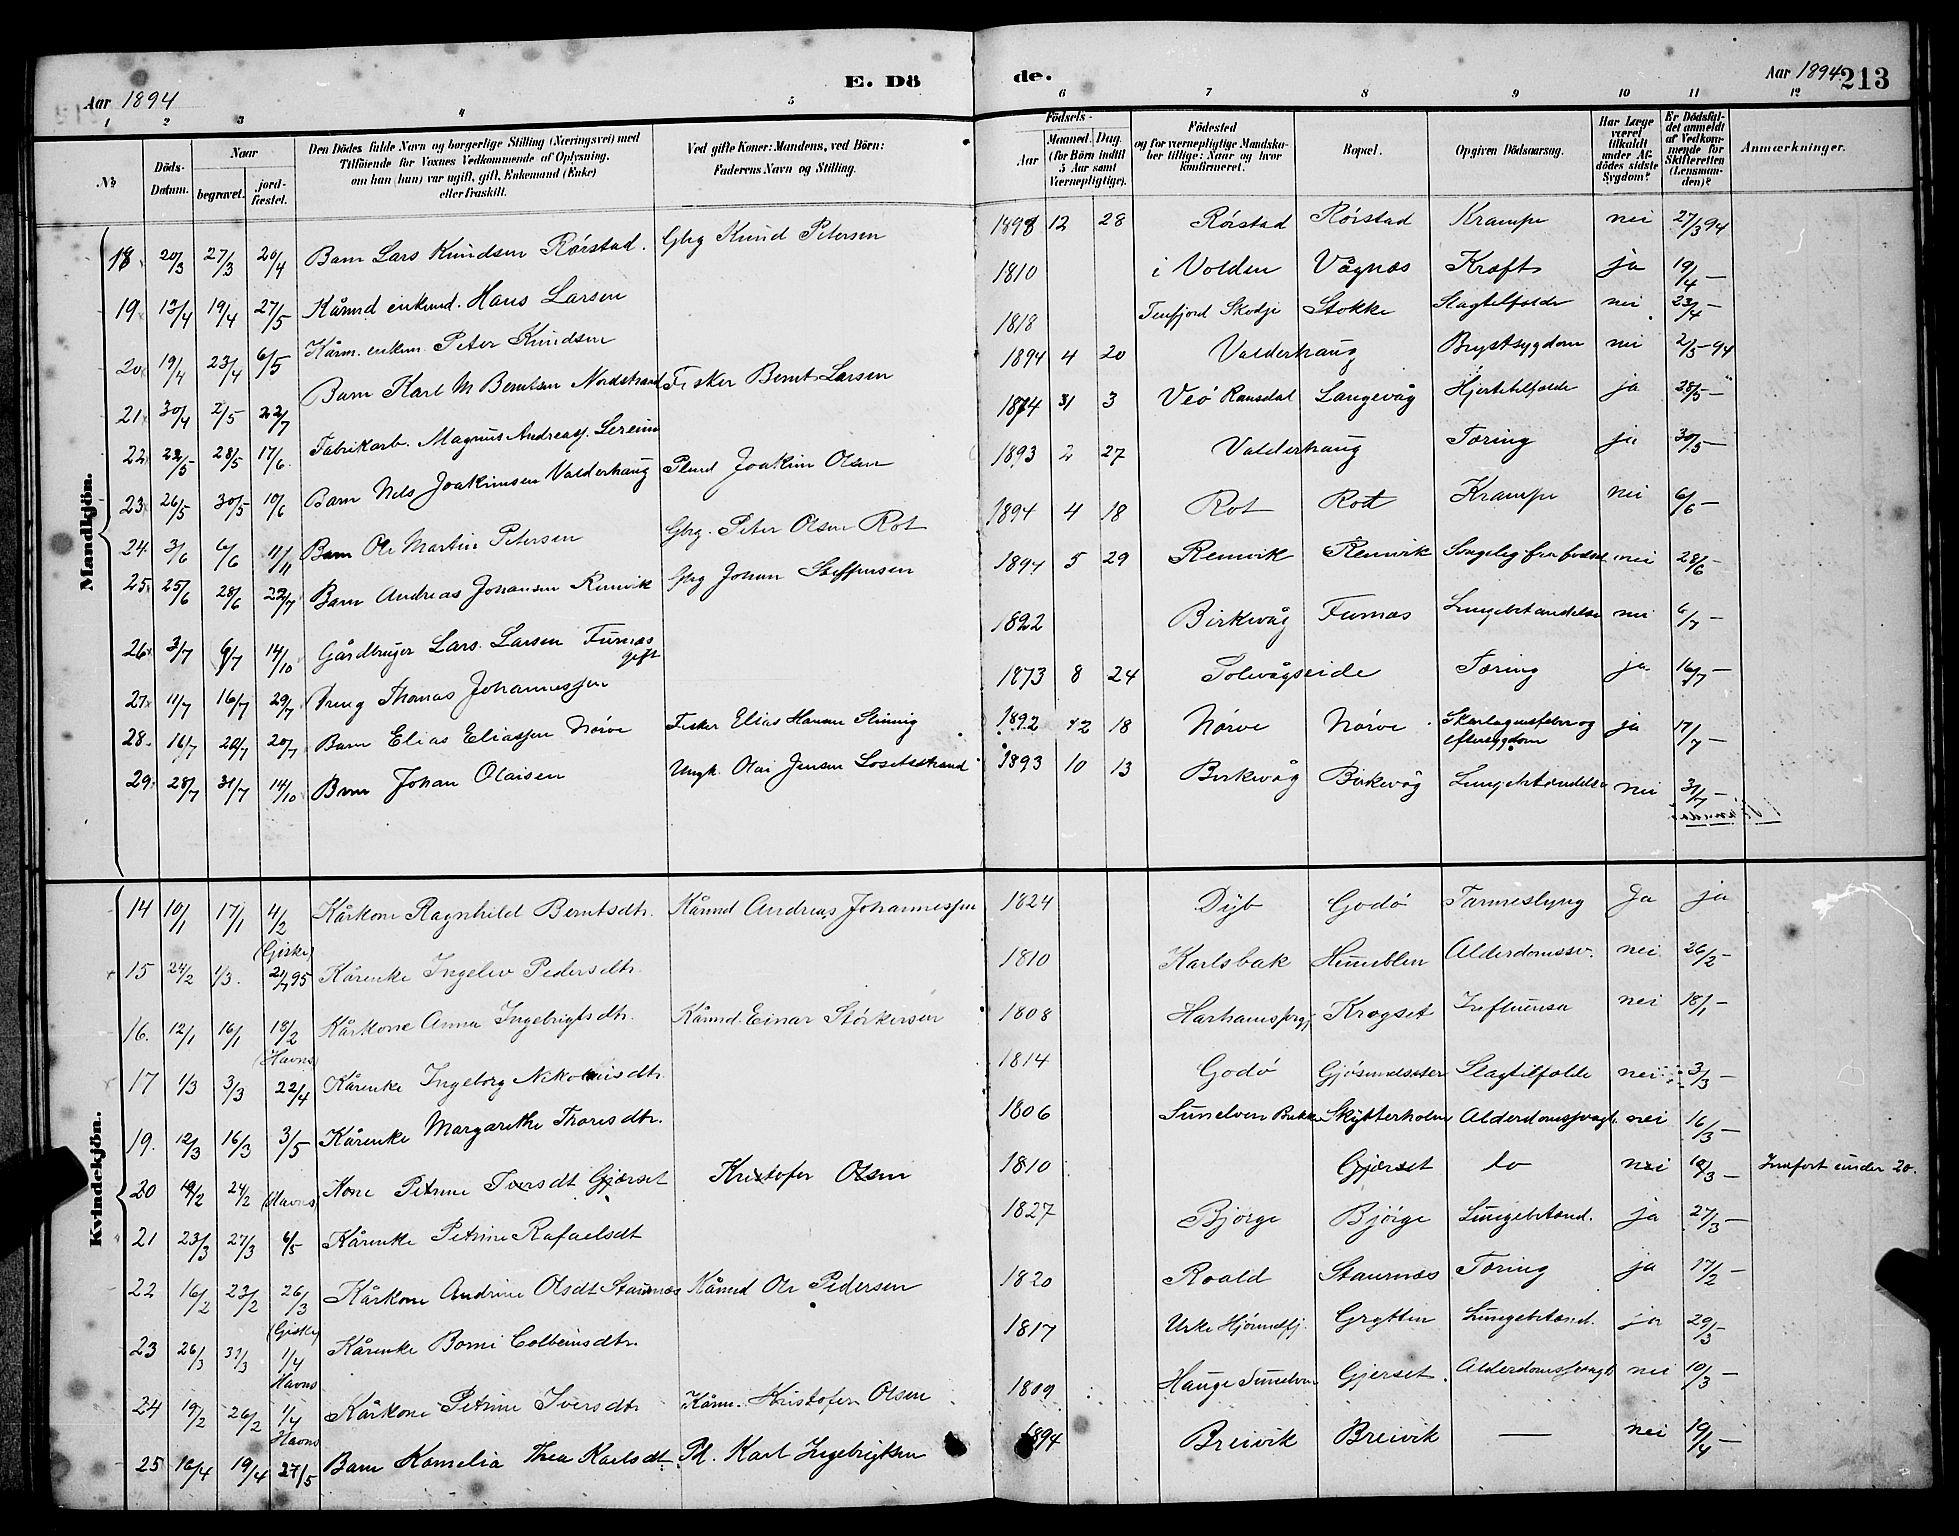 Aar 1894
E. Dö
de.
Aar 1894. 213
1 2 3 4 5 6 7 8 9 10 11 12
№
Döds-Datum.
Naar
begravet.
jord-fæstet.
Den Dödes fulde Navn og borgerlige Stilling (Næringsvei) med
Tilföiende for Voxnes Vedkommende af Oplysning,
om han (hun) var ugift, gift, Enkemand (Enke)
eller fraskilt.
Ved gifte Koner: Mandens, ved Börn:
Faderens Navn og Stilling.
Födsels-
Aar
Maaned. Dag.
(for Börn indtil
5 Aar samt
Værnepligtige).
Födested
og for værnepligtige Mandska-
ber tillige: Naar og hvor
konfirmeret.
Bopæl.
Opgiven Dödsaarsag.
Har Læge
været
tilkaldt
under Af-
dödes sidste
Sygdom?
Er Dödsfal-
det anmeldt
af Vedkom-
mende for
Skifteretten
(Lensman-
den)?
Anmærkninger.
Mandkjön.
18 20/3 27/3 20/4 Barn Lars Knudsen Rörstad. Gbrg Knud Petersen 1893 12 28 Rörstad Rörstad Krampe nei 27/3 94
19 13/4 19/4 27/5 Kårmd enkemd. Hans Larsen 1810 i Volden Vågnæs Kræft ja 19/4 —
20 19/4 23/4 6/5 Kårm. enkem. Peter Knudsen 1818 Tenfjord Skodje Stokke Slagtilfælde nei 23/4 —
21 30/4 2/5 22/7 Barn Karl M Berntsen Nordstrand Fisker Bernt Larsen 1894 4 20 Valderhaug Brystsygdom nei 2/5 94
22 22/5 28/5 17/6 Fabrikarb. Magnus Andreas. 1874 31 3 Veö Ramsdal Langevåg Hjertetilfælde ja 28/5 —
23 26/5 30/5 10/6 Barn Nils Joakimsen Valderhaug Joakim Olsen 1893 2 27 Valderhaug Tæring ja 30/5 —
24 3/6 6/6 11/11 Barn Ole Martin Petersen Gbrg. Peter Olsen Rot 1894 4 18 Rot Rot Krampe nei 6/6 —
25 25/6 28/6 22/7 Barn Andreas Johansen Remvik Gbrg Johan Steffensen 1894 5 29 Remvik Remvik Svagelig fra födsel nei 28/6 —
26 3/7 6/7 14/10 Gårdbruger Lars Larsen Furnæs gift 1822 Birkevåg Furnæs Lungebetændelse nei 6/7 —
27 11/7 16/7 29/7 Thomas Johannesen 1873 8 24 Solevågseide Tæring ja 16/7 —
28 16/7 20/7 20/7 Barn Elias Eliassen Nörve Fisker Elias Hansen 1892 12 18 Nörve Nörve Skarlagensfeber og eftersygdom ja 17/7 —
29 28/7 31/7 14/10 Barn Johan Olaisen Ungk. Olai Jensen 1893 10 13 Birkevåg Birkevåg Lungebetændelse nei 31/7 —
Kvindekjön.
14 10/1 17/1 4/2 (Giske) Kårkone Ragnhild Berntsdtr. Kårmd Andreas Johannessen 1824 Dyb Godö Tarmeslyng Ja ja
15 24/2 1/3. 21/7 95 Kårenke Ingelev Pedersdtr. 1810 Karlsbak Humblen Alderdomssv. nei 26/2 —
16. 12/1 16/1 19/2 (Havns) Kårkone Anna Ingebrigtsdtr. Kårmd. Einar Störkersen 1808 Krogset Influensa nei 18/1 —
17 1/3 3/3 22/4 Kårenke Ingeborg 1814 Godö Gjösundsæter Slagtilfælde nei 3/3 —
19. 12/3 16/3 3/5 Kårenke Margarethe Thoresdtr. 1806 Sunelven Skytterholm Alderdomssvagh. nei 16/3 —
20 19/2 24/2 (Havns) Kone Petrine Iversdt Gjærset Kristofer Olsen 1810 Gjærset do nei 19/3 — Indfört under 20.
21 23/3 27/3 6/5 Kårenke Petrine Rafaelsdt 1827 Björge Björge Lungebetænd. ja 27/3 —
22 16/2 23/2 26/3 (Giske) Kårkone Andrine Olsdt Staurnæs Kårmd Ole Pedersen 1820 Roald Staurnæs Tæring ja 17/2 —
23 26/3 31/3 1/4 Havns Kårenke Borni Colbeinsdtr. 1817 Urke Hjörundfj. Grytten Lungebetænd. ja 29/3
24 19/2 26/2 1/4 Havns Kårkone Petrine Iversdtr Kårm. Kristofer Olsen 1809 Hauge Sunelven Gjerset. Alderdomssvagh nei 10/3 —
25 16/4 19/4 27/5 Barn Kornelia Thea Karlsdt. Pl. Karl Ingebrigtsen 1894 Breivik Breivik — nei 19/4 —